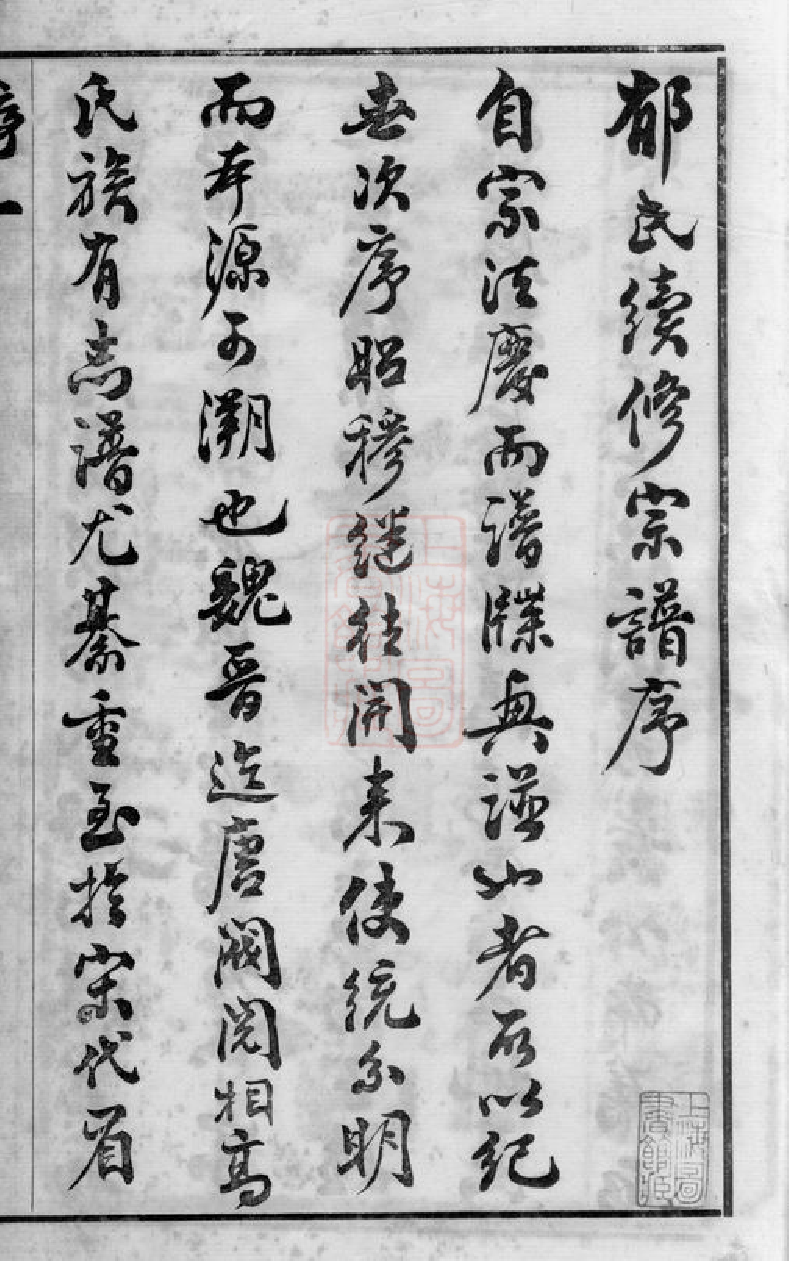 郁氏續修宗譜序
自宗法廢而譜牒興譜也者所以紀
世次序昭穆繼往開來使統分明
而本源可溯也魏晉迄唐閥閱相高
氏族有志譜尤綦重至於宋代眉
序一
上海圖書館藏
上海圖書館藏